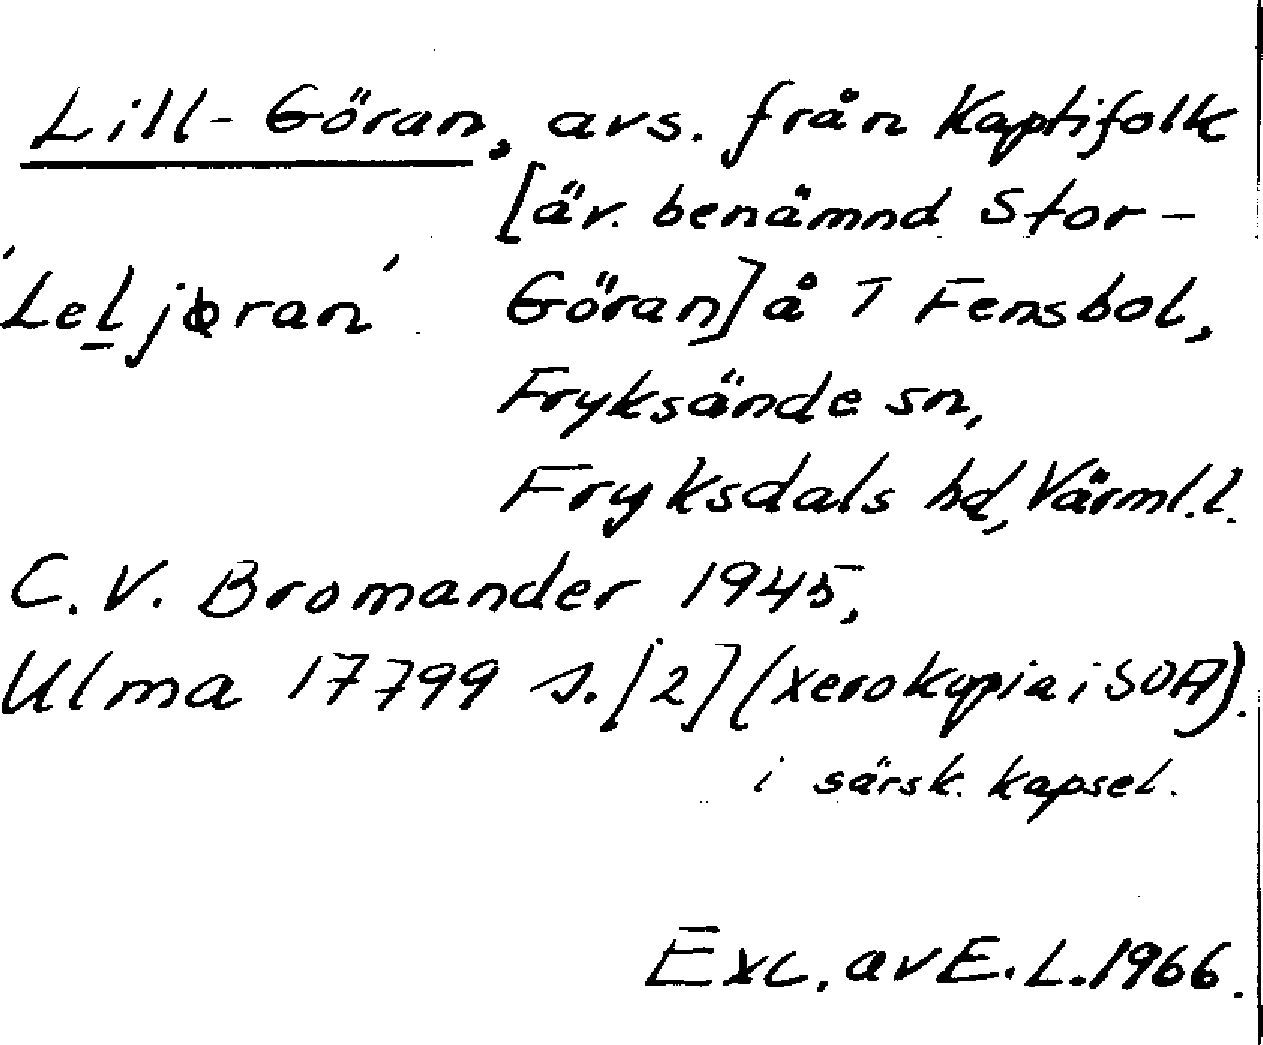 Lill-Göran, avs. från Kaptifolk
[äv. benämnd Stor-
'Leljöran' Göran] å T Fensbol,
Fryksände sn,
Fryksdals hd, Värml.l.
C.V. Bromander 1945,
Ulma 17799 s. [2] (xerokopia i SOA).
i särsk. kapsel.
Exc. av E.L. 1966.